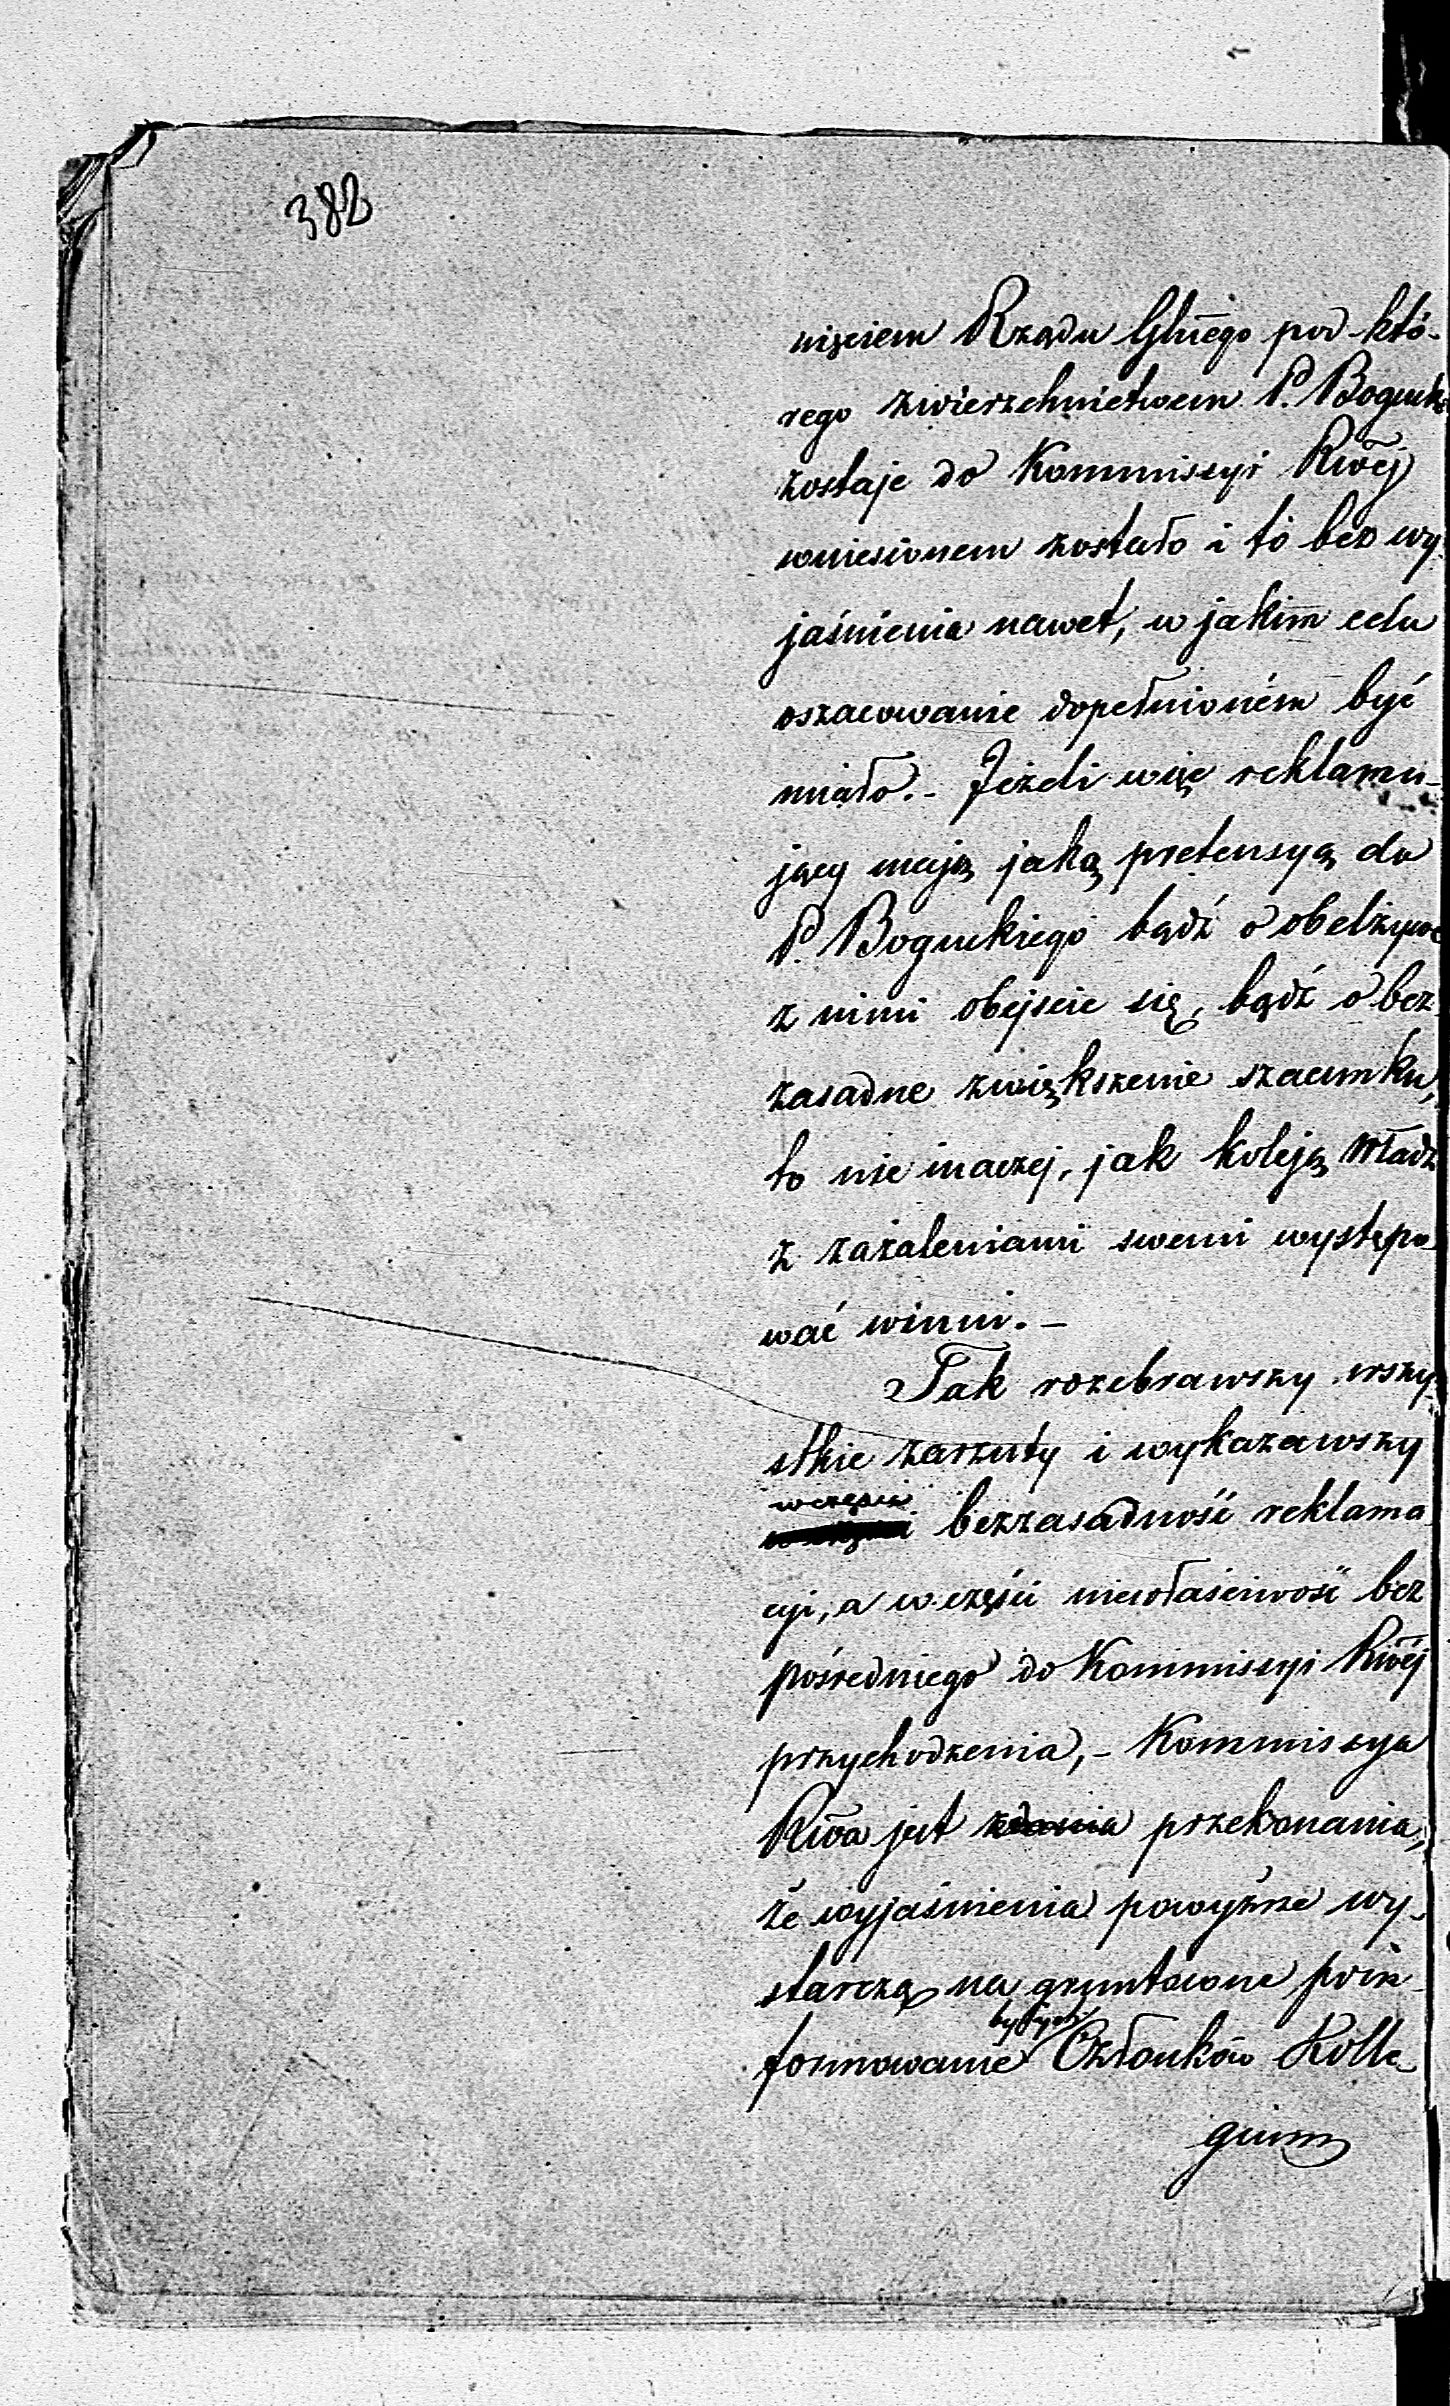 382
nięciem Rządu Glnego pod któ-
rego zwierzchnictwem P. Bogucki
zostaje do Kommissyi Rwej
wniesionem zostało i to bez wy
jaśnienia nawet, w jakim celu
oszacowanie dopełnioném być
miało.- Jeżeli więc reklamu-
jący mają jaką pretensyą do
P. Boguckiego bądź o obelżywe
z nimi obejscie się, bądź o bez
zasadne zwiększenie szacunku,
to nie inaczej, jak koleją Władz
z zażaleniami swemi występo-
wać winni.-
Tak rozebrawszy wszy-
stkie zarzuty i wykazawszy
w części
bezzasadność reklama
cyi, a w części niewłaściwość bez
pośredniego do Kommissyi Rwej
przychodzenia,- Kommissya
Rwa jest zdania przekonania,
że wyjaśnienia powyższe wy-
starczą na gruntowne poin-
byłych
formowanie Członków Kolle-
gium